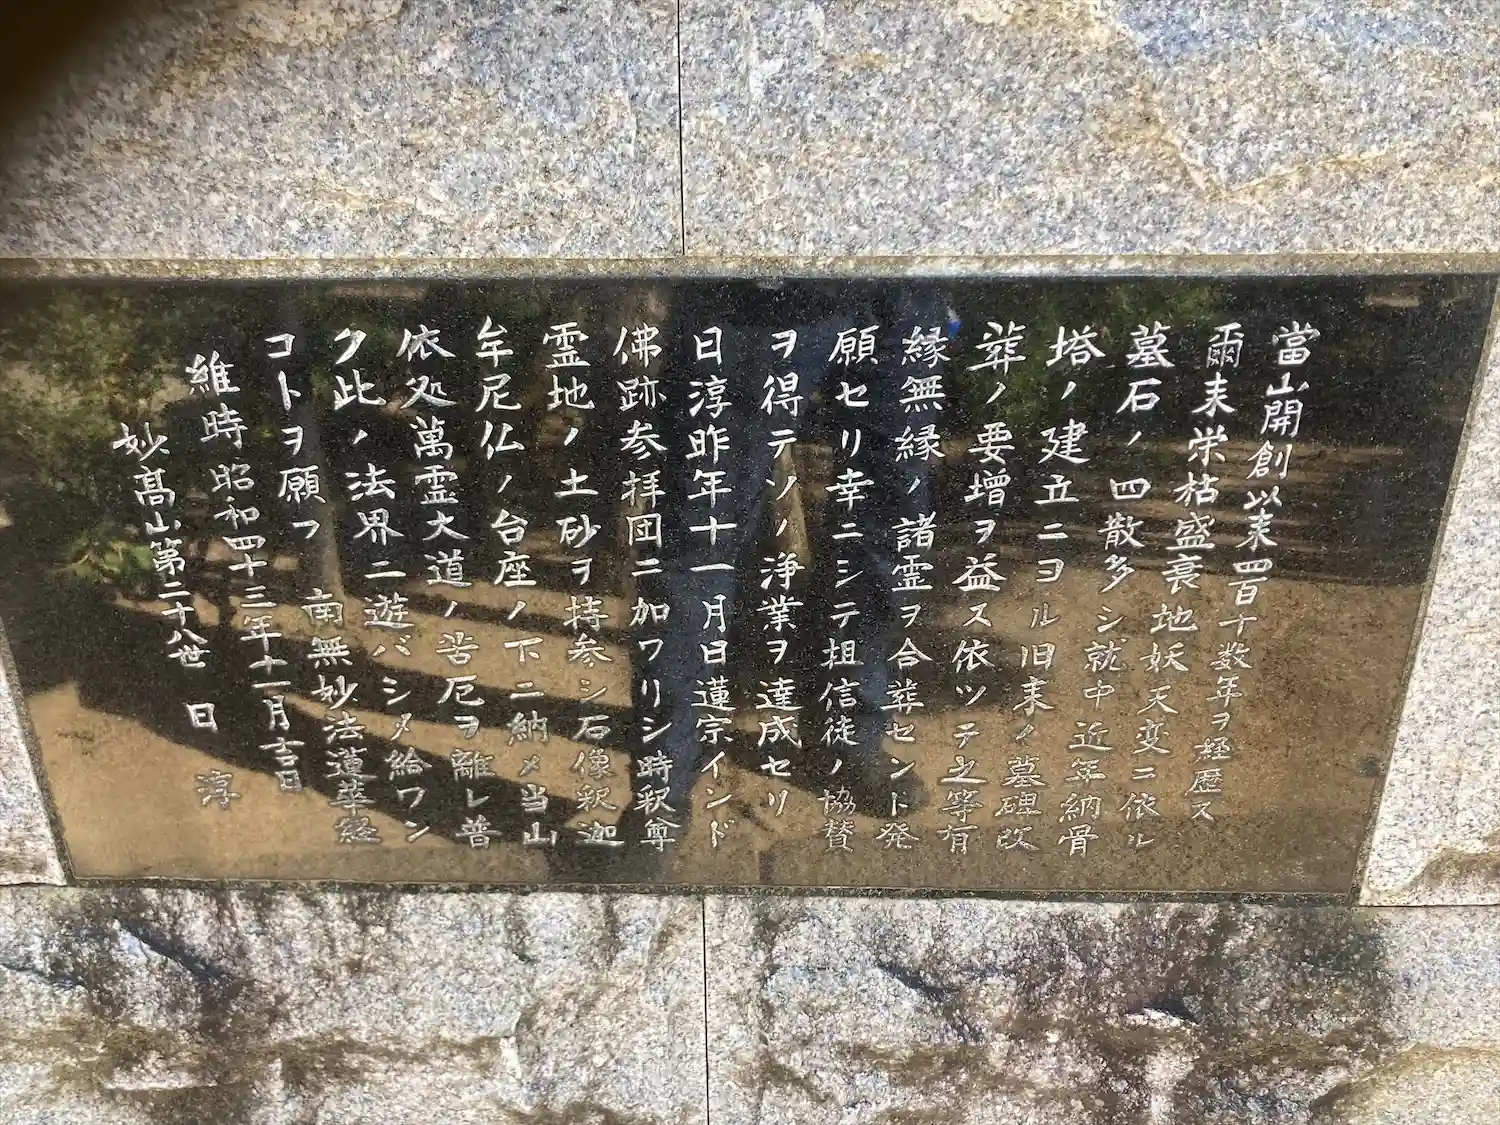 當山開創以来四百十数年ヲ経歴ス
爾来栄枯盛衰地妖天変ニ依ル
墓石ノ四散多シ就中近年納骨
塔ノ建立ニヨル旧来ノ墓碑改
葬ノ要増ヲ益ス依ツテ之等有
縁無縁ノ諸霊ヲ合葬セント発
願セリ幸ニシテ担信徒ノ協賛
ヲ得テソノ浄業ヲ達成セリ
日淳昨年十一月日蓮宗インド
佛跡参拝団ニ加ワリシ時釈尊
霊地ノ土砂ヲ持参シ石像釈迦
牟尼仏ノ台座ノ下ニ納メ当山
依処萬霊大道ノ苦厄ヲ離レ普
ク此ノ法界ニ遊バシメ給ワン
コトヲ願フ 南無妙法蓮華経
維時昭和四十三年十一月吉日
妙髙山第二十八世 日 淳